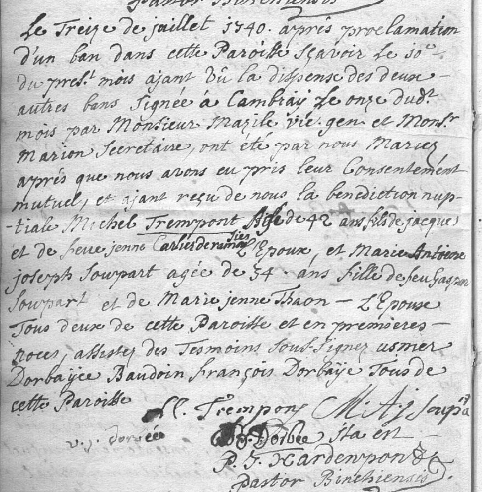 Pastor Binchiensis
Le Treize de juillet 1740. aprés proclamation
d'un ban dans cette Paroisse sçavoir le 10e
du prest. mois ajant vû la dispense des deux
autres bans signée à Cambraÿ le onze dudt.
mois par Monsieur Mazile vic. gen. et Monsr
Marion Secretaire, ont été par nous Mariez
aprés que nous avons eu pris leur Consentement
mutuel, et ajant reçu de nous la benediction nup-
-tiale Michel Trempont Agé de 42 ans fils de jacques
et de feue jenne Carlier L'Epoux, et Marie Antoine
joseph Soupart agée de 34. ans fille de feu Gaspar
Soupart et de Marie jenne Thaon - L'Epouse
Tous deux de cette Paroisse et en premieres -
noces, assistez des Tesmoins sous-signez usmer
Dorbaÿe Baudoin françois Dorbaÿe Tous de
cette Paroisse
M. Trempont M. A. j Soupart
Dorbee Ita est
P. J. Hardenpont
Pastor Binchiensis